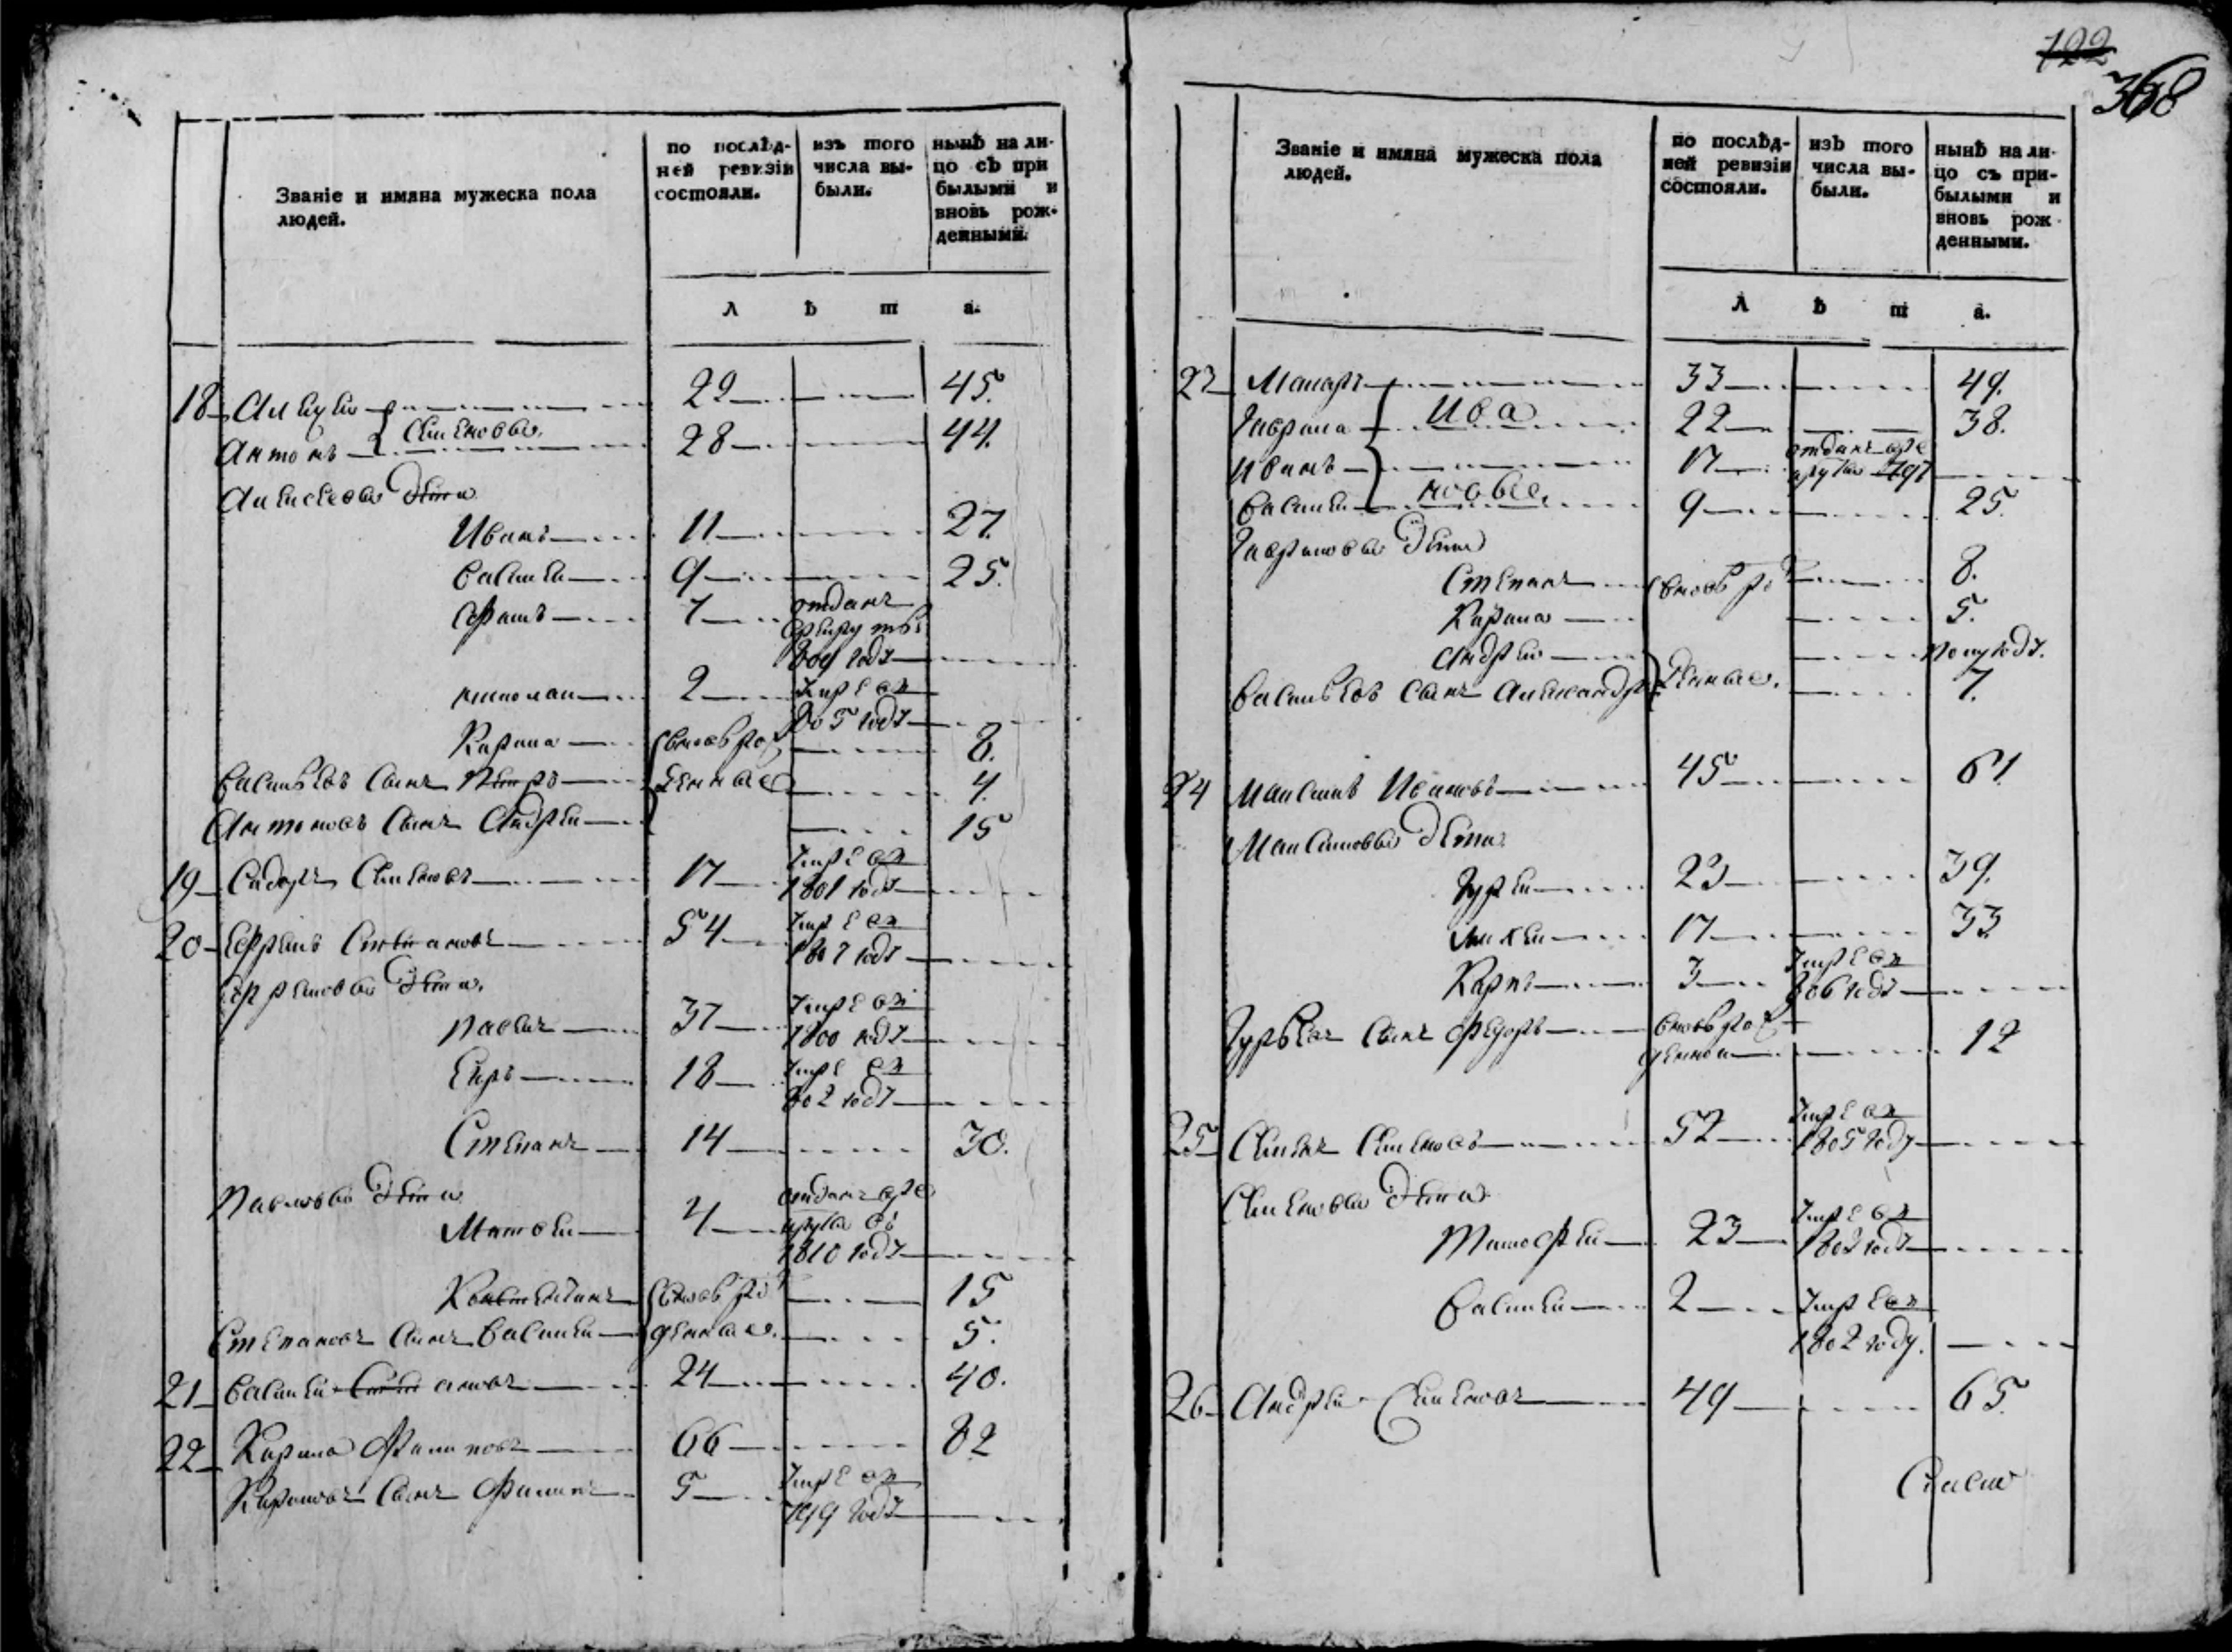 Званіе и имяна мужеска пола
людей.
по послѣд-
ней ревизіи
состояли.
изъ того
числа вы-
были.
нынѣ на ли-
цо съ при
былыми и
вновь рож-
денными.
л ѣ т а.
18 Алексѣи 29 45.
Семеновы
Антонъ 28 44.
Алексѣевы дѣти
Иванъ 11 27.
Василеи 9 25.
Ефимъ 7 отданъ
в рекруты
809 году
николаи 2 умре въ
805 году
Кирила вновь рож 8.
Васильевъ сынъ Петръ денные 4.
Антоновъ сынъ Андреи 15
19 Сидоръ Семеновъ 17 умре въ
1801 году
20 Ефремъ Степановъ 54 умре въ
1807 году
Ефремовы дѣти.
Павелъ 37 умре въ
1800 году
18 умре въ
802 году
Степанъ 14 30.
Павловы дѣти
Матвеи 4 отданъ в ре
круты въ
1810 году
Константинъ вновь ро 15
Степановъ сынъ Василеи жденные. 5.
21 Василеи Степановъ 24 40.
22 Кирила Филиповъ 66 82
Кириловъ сынъ Филипъ 5 умре въ
799 году
122
368
Званіе и имяна мужеска пола
людей.
по послѣд-
ней ревизіи
состояли.
изъ того
числа вы-
были.
нынѣ на ли-
цо съ при-
былыми и
вновь рож
денными.
л ѣ т а.
23 Макаръ 33 49.
Гаврила Ива 22 38.
Иванъ 17 отданъ в ре
круты 797
Василеи новы. 9 25.
Гавриловы дѣти
Степанъ вновь ро 8.
Кирила 5.
Андреи полугоду.
Васильевъ сынъ Александръ жденные. 7.
24 Максимъ Ивановъ 45 61
Максимовы дѣти.
Гуреи 23 39.
Михеи 17 33
Карпъ 3 умре въ
806 году
Гурьевъ сынъ Федоръ вновь рож
денной 12
25 Семенъ Семеновъ 52 умре въ
1805 году
Семеновы дѣти
Тимофеи 23 умре въ
1802 году
Василеи 2 умре въ
1802 году.
26 Андреи Семеновъ 49 65.